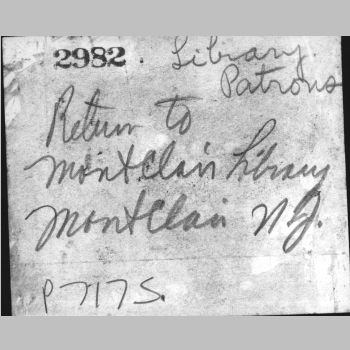 2982. Library.
Patrons
Return to
Montclair Library
Montclair N.J.
P7175.